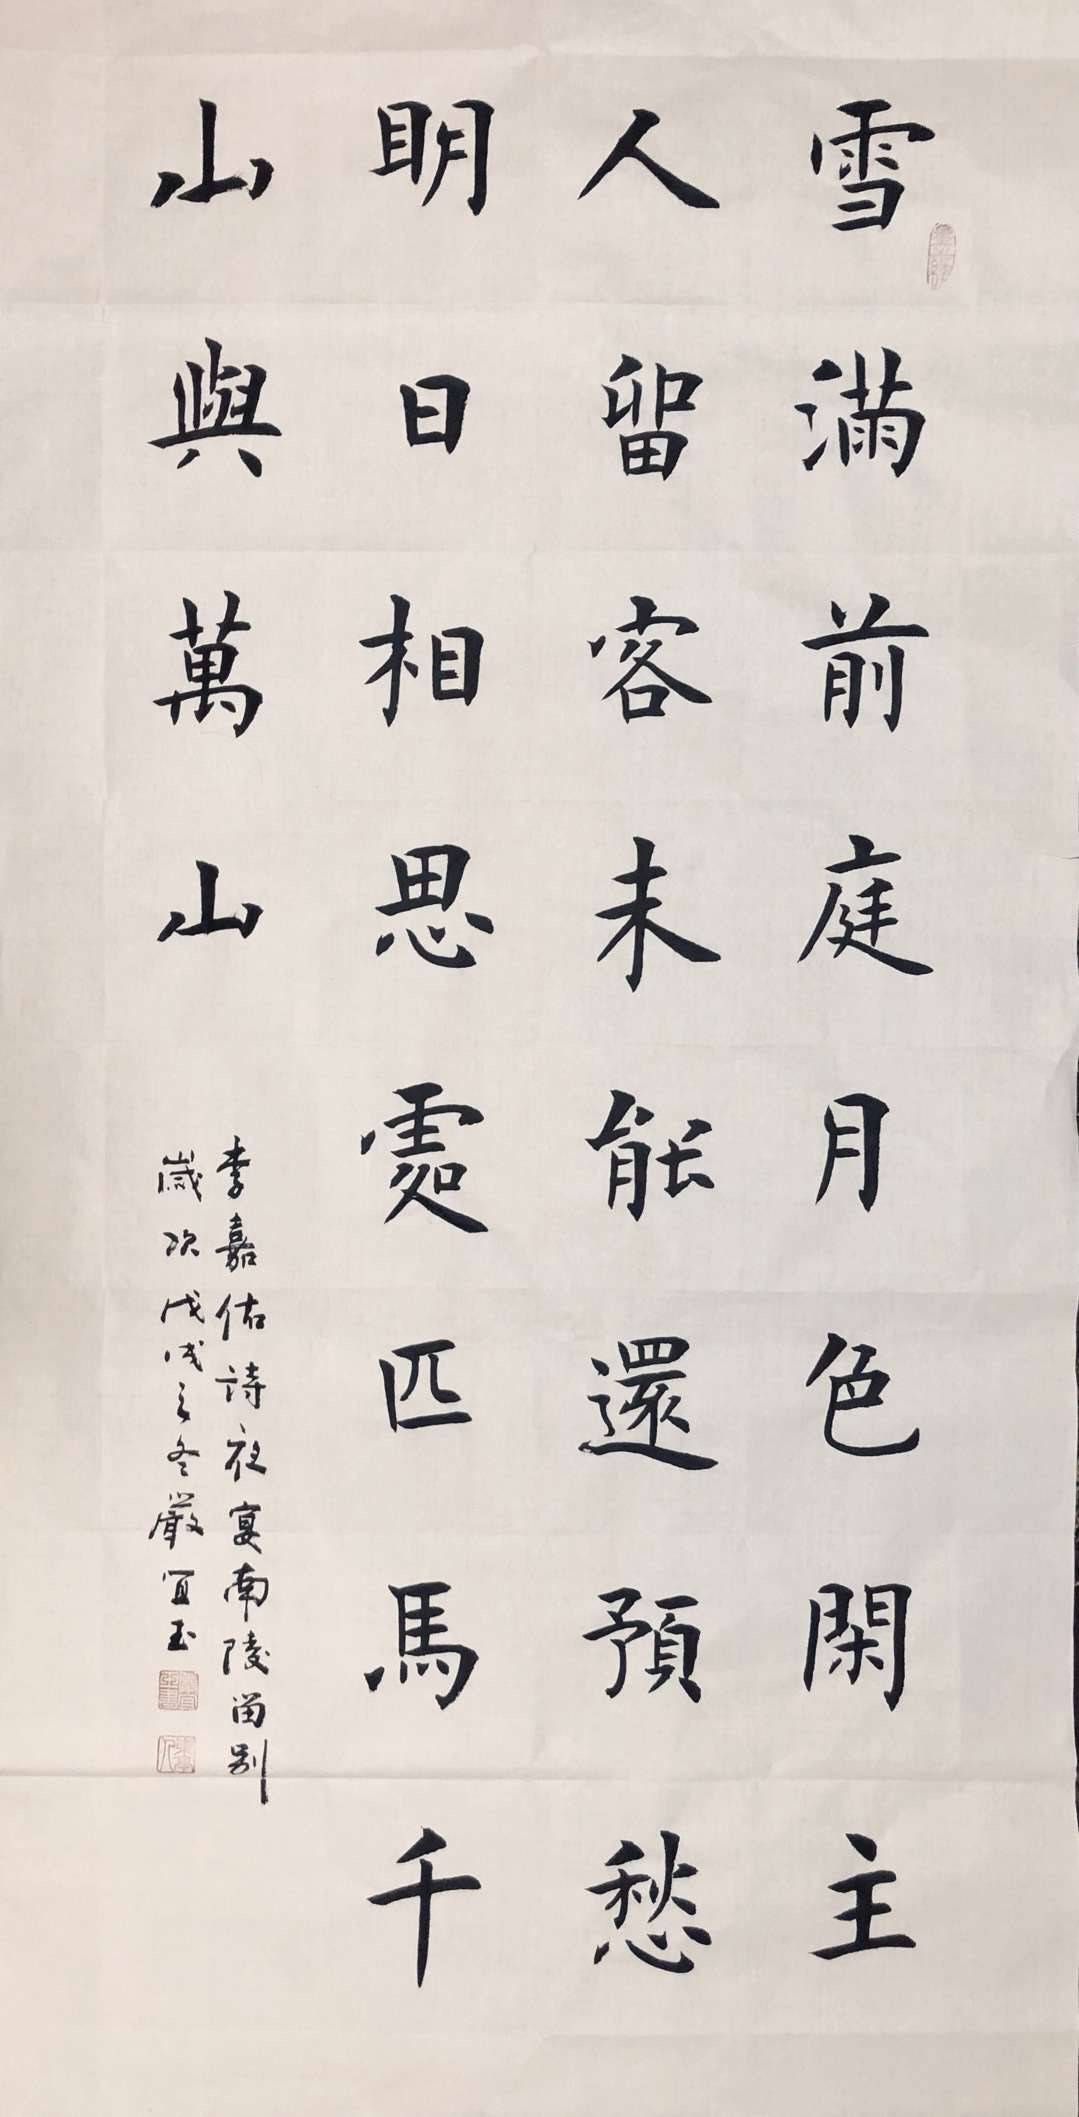 雪滿前庭月色閑主
人留客未能還預愁
明日相思處匹馬千
山與萬山
李嘉佑詩夜宴南陵留別
歲次戊戌之冬嚴宜玉